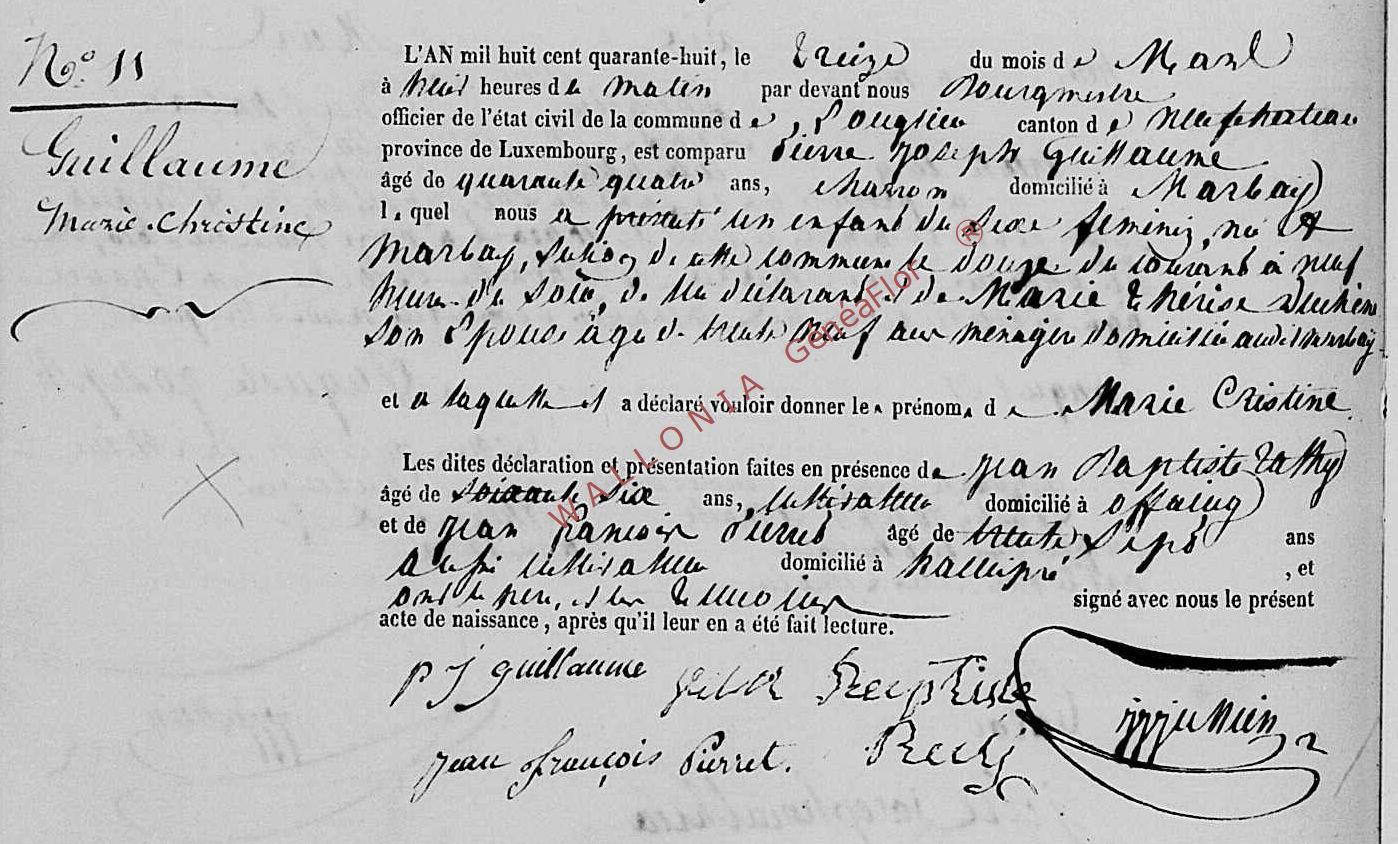 No. 11
Guillaume
Marie-Christine
L'AN mil huit cent quarante-huit, le treize du mois de Mars
à heures du matin par devant nous Bourgmestre
officier de l'état civil de la commune de Longlier canton de Neufchateau
province de Luxembourg, est comparu Pierre Joseph Guillaume
âgé de quarante quatre ans, charron domicilié à Marbay
lequel nous a présenté un enfant du sexe feminin, né à
Marbay, section de cette commune le douze du courant à neuf
heures du soir, de lui déclarant et de Marie Thérèse
son Epouse âgée de trente neuf ans ménagère domiciliée audit Marbay
et a laquelle il a déclaré vouloir donner les prénoms de Marie Cristine
Les dites déclaration et présentation faites en présence de Jean Baptiste
âgé de soixante six ans, cultivateur domicilié à offaing
et de Jean François Pierret âgé de trente sept ans
aussi cultivateur domicilié à hamipré, et
ont le père et les témoins signé avec nous le présent
acte de naissance, après qu'il leur en a été fait lecture.
p j guillaume Baptiste
jean françois Pierret.
WALLONIA GénéaFlor ®